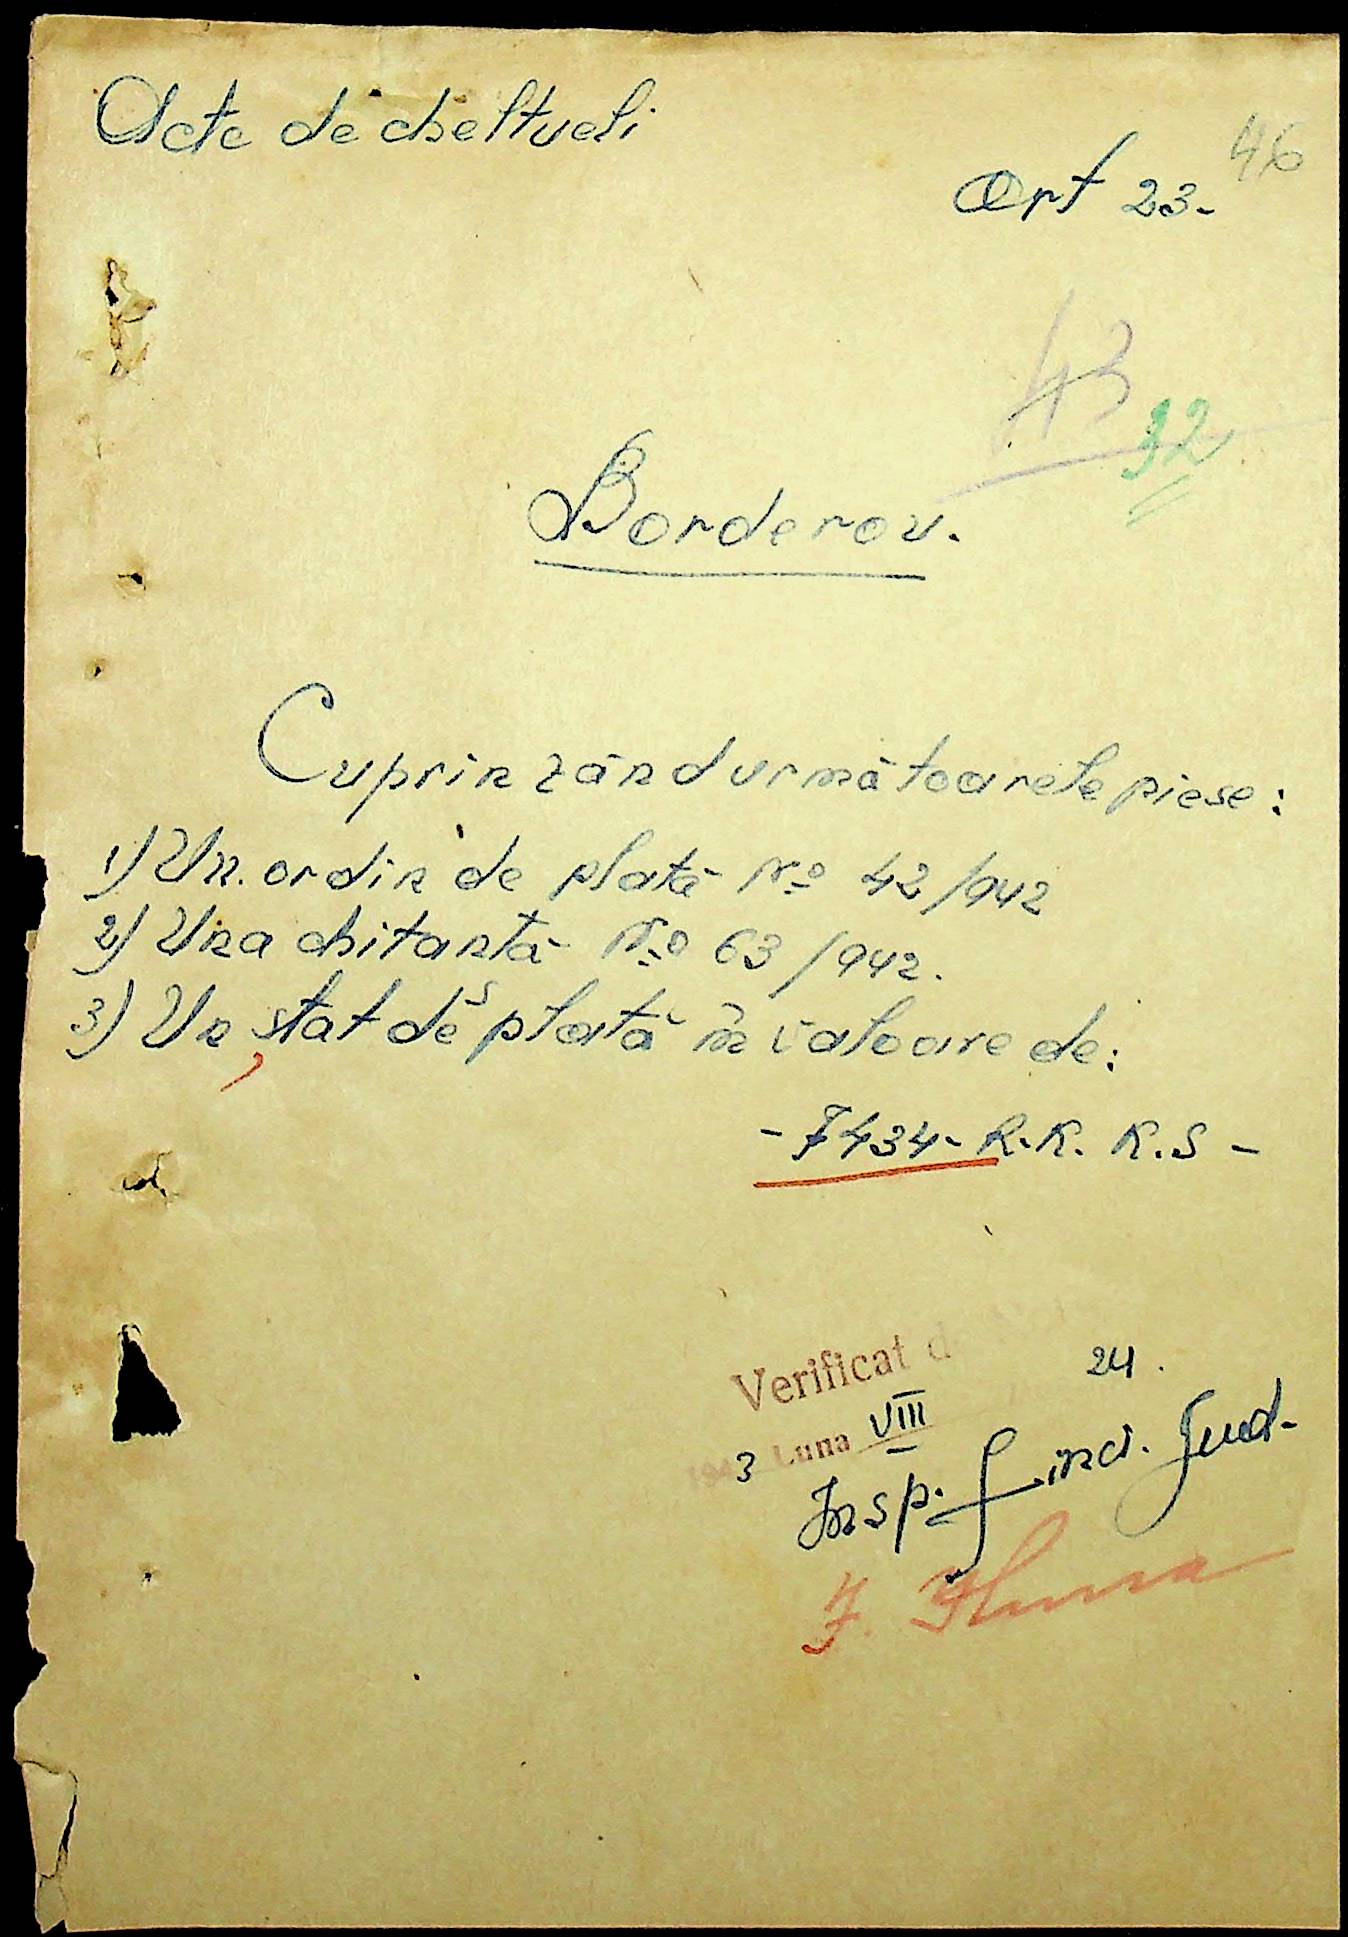 Acte de cheltueli
46
Art 23-
43
32
Borderou.
Cuprinzând următoarele piese:
1) Un ordin de plată No 42/942
2) Una chitanță No 63/942.
3) Un stat de plată în valoare de:
- 7434- R.K.K.S -
Verificat
24.
1943 Luna VIII
Insp. financ. Jud.